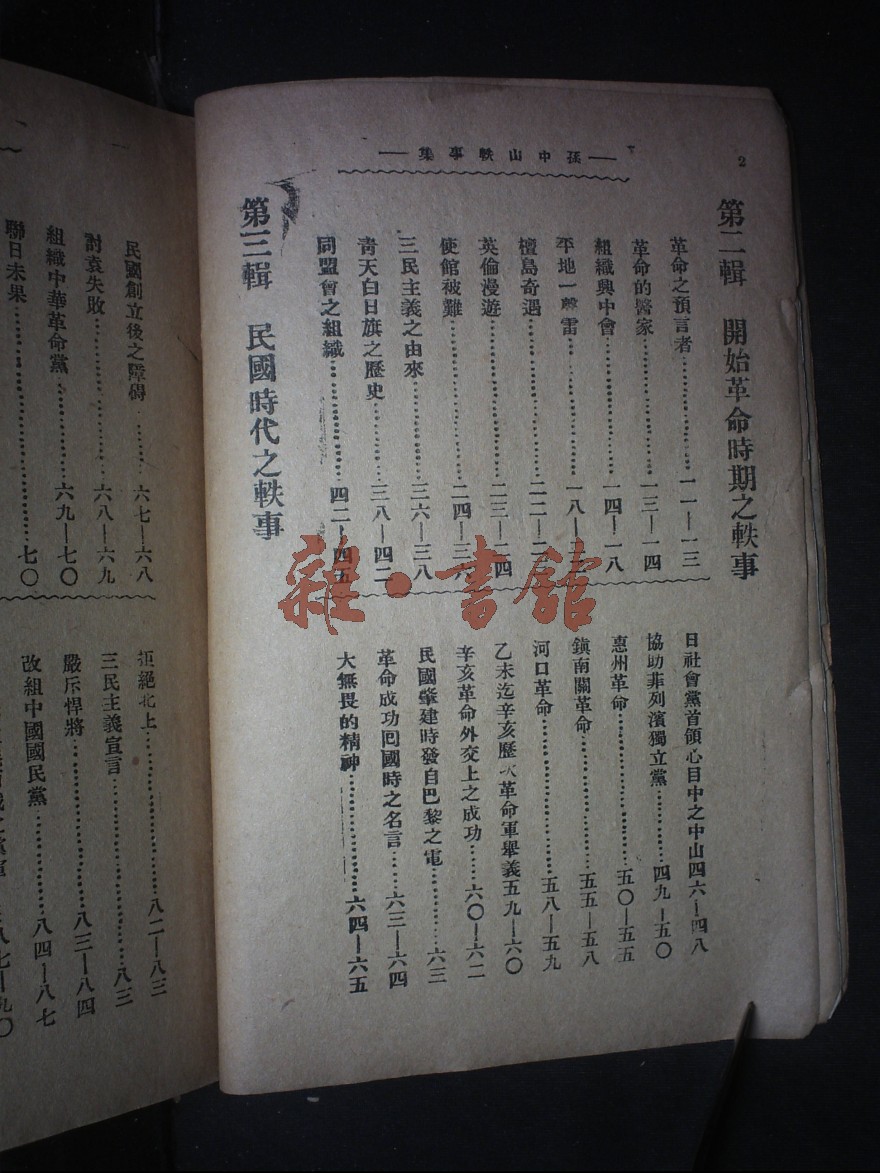 2
—孫中山軼事集—
第二輯 開始革命時期之軼事
革命之預言者……一一—一三
革命的醫家……一三—一四
組織興中會……一四—一八
平地一聲雷……一八—二
檀島奇遇……二二—二
英倫漫遊……二三—二四
使館被難……二四—三六
三民主義之由來……三六—三八
靑天白日旗之歷史……三八—四二
同盟會之組織……四二—四五
日社會黨首領心目中之中山四六—四八
協助菲列濱獨立黨……四九—五〇
惠州革命……五〇—五五
鎮南關革命……五五—五八
河口革命……五八—五九
乙未迄辛亥歷次革命軍舉義五九—六〇
辛亥革命外交上之成功……六〇—六二
民國肇建時發自巴黎之電……六三
革命成功囘國時之名言……六三—六四
大無畏的精神……六四—六五
第三輯 民國時代之軼事
民國創立後之障碍……六七—六八
討袁失敗……六八—六九
組織中華革命黨……六九—七〇
聯日未果……七〇
拒絕北上……八二—八三
三民主義宣言……八三
嚴斥悍將……八三—八四
改組中國國民黨……八四—八七
八七—九〇
雜·書館